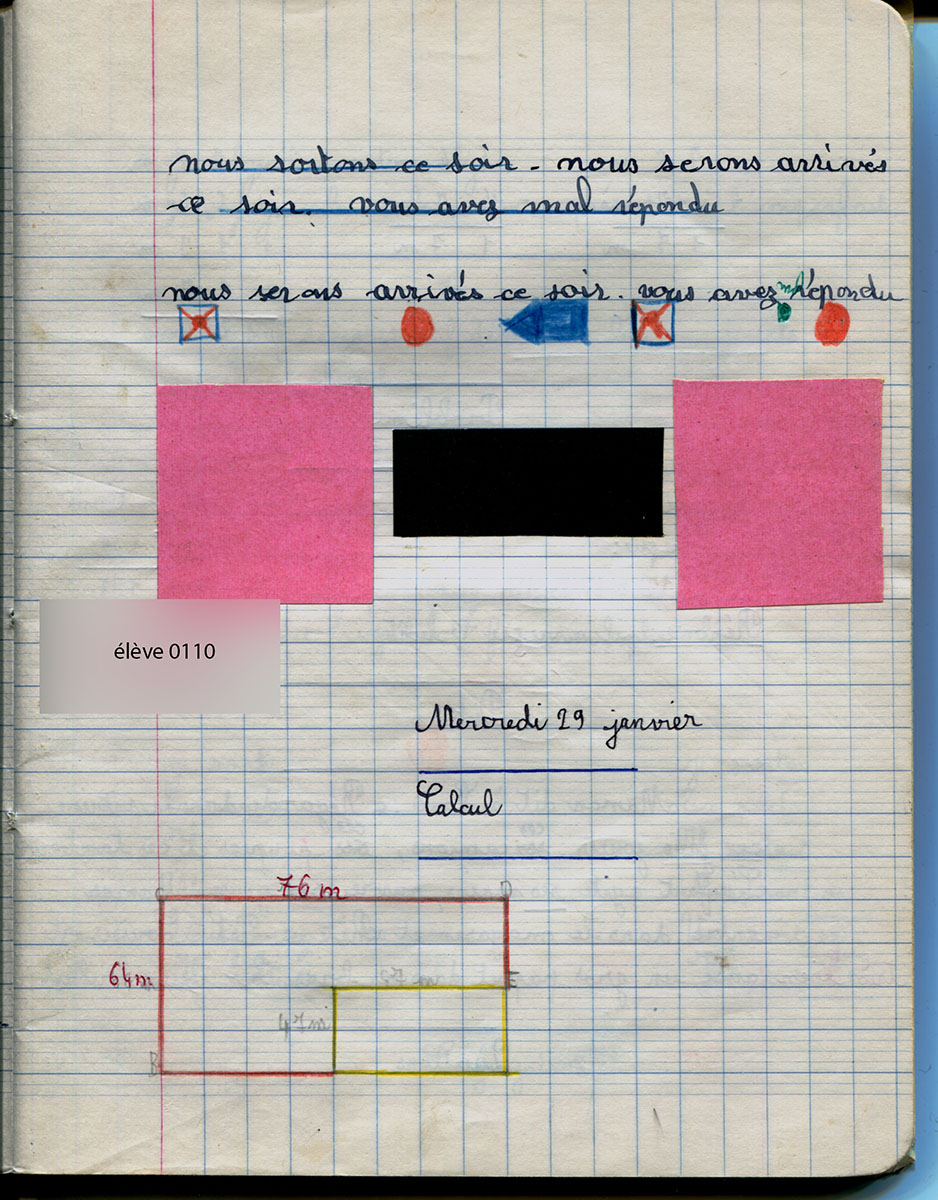 nous sortons ce soir - nous serons arrivés
ce soir. vous avez mal répondu
nous serons arrivés ce soir. vous avez mal répondu
élève 0110
Mercredi 29 janvier
Calcul
76 m
64 m
E
47 m
B